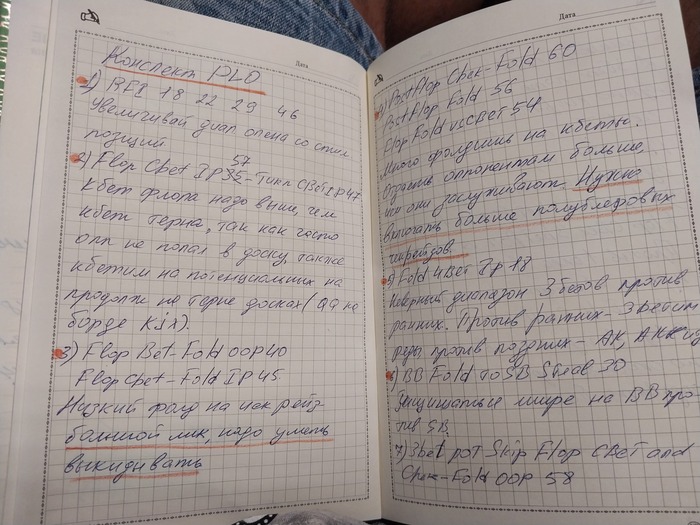 Дата
Конспект PLO
1) RFI 18 22 29 46
Увеличивай диап опена со стил
позиций
57
2) Flop Cbet IP35 - Тёрн CBet IP47
Кбет флопа надо выше, чем
кбет терна, так как часто
опп не попал в доску, также
кбетим на потенциальных на
продолж не терне досках (QQ на
борде KJx).
3) Flop Bet-Fold OOP40
Flop Cbet-Fold IP45
Низкий фолд на чек рейз-
большой лик, надо уметь
выкидывать
Дата
4) Postflop Chek-Fold 60
Postflop Fold 56
Flop Fold vs CBET 54
Много фолдишь на кбеты.
Отдаёшь оппонентам больше,
чем они заслуживают. Нужно
включать больше полублефовых
чекрейзов.
5) Fold 4Bet IP 18
Неверный диапазон 3бетов против
ранних. Против ранних - 3бетим
ред, против поздних - AK, AKK
6) BB Fold to SB Steal 30
Защищаться шире на BB про-
тив SB.
7) 3bet pot Skip Flop CBet and
Chek-Fold OOP 58